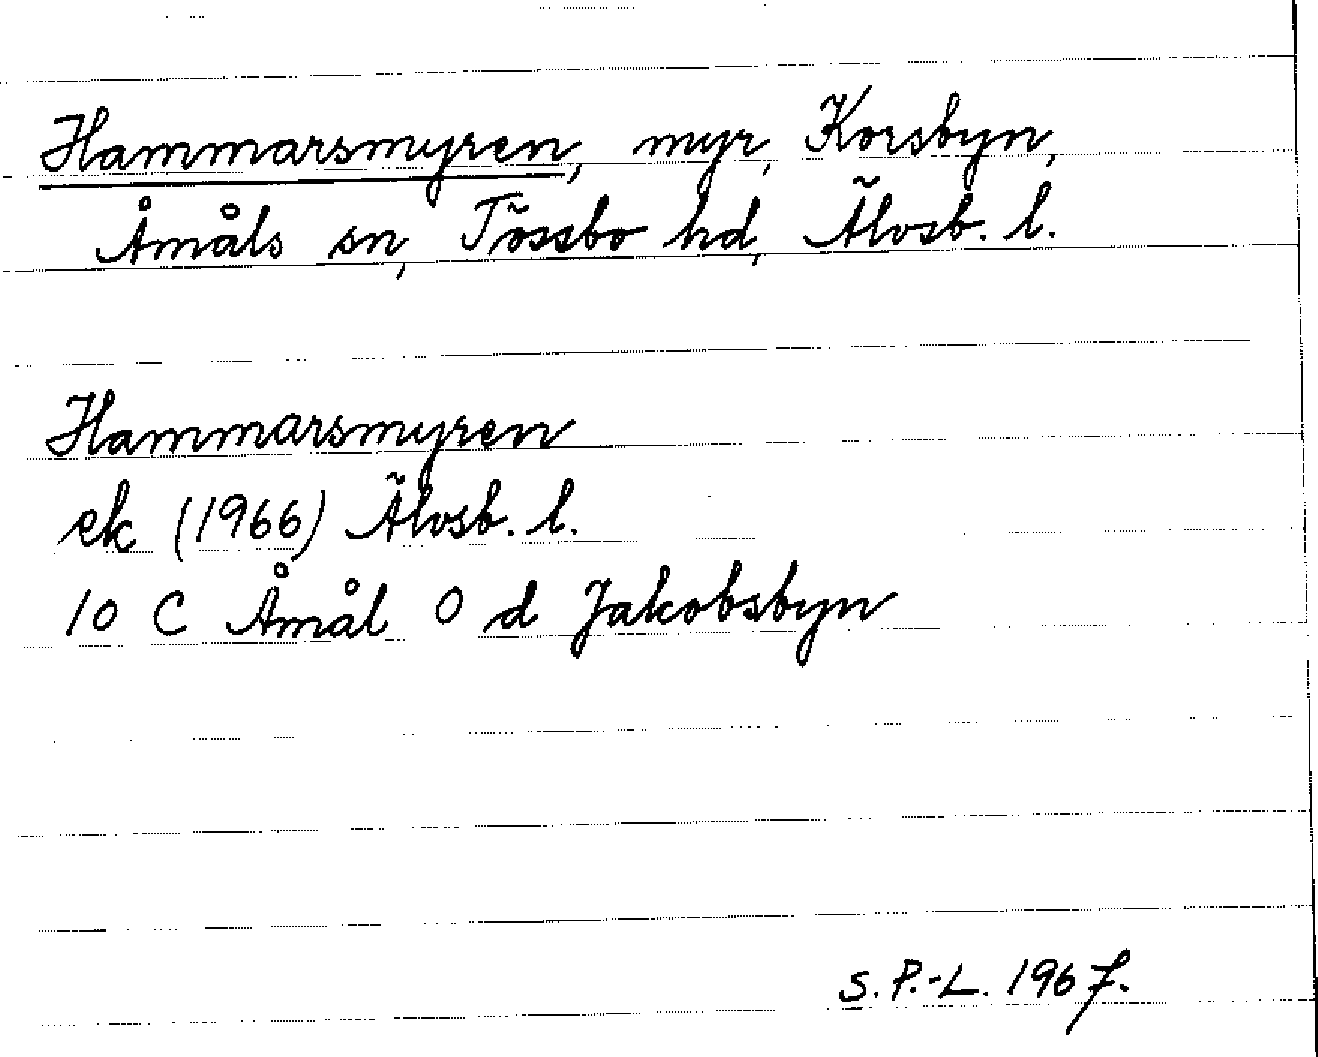 Hammarsmyren, myr, Korsbyn,
Åmåls sn, Tössbo hd, Älvsb. l.
Hammarsmyren
ek (1966) Älvsb. l.
10 C Åmål 0 d Jakobsbyn
S. P.-L. 1967.